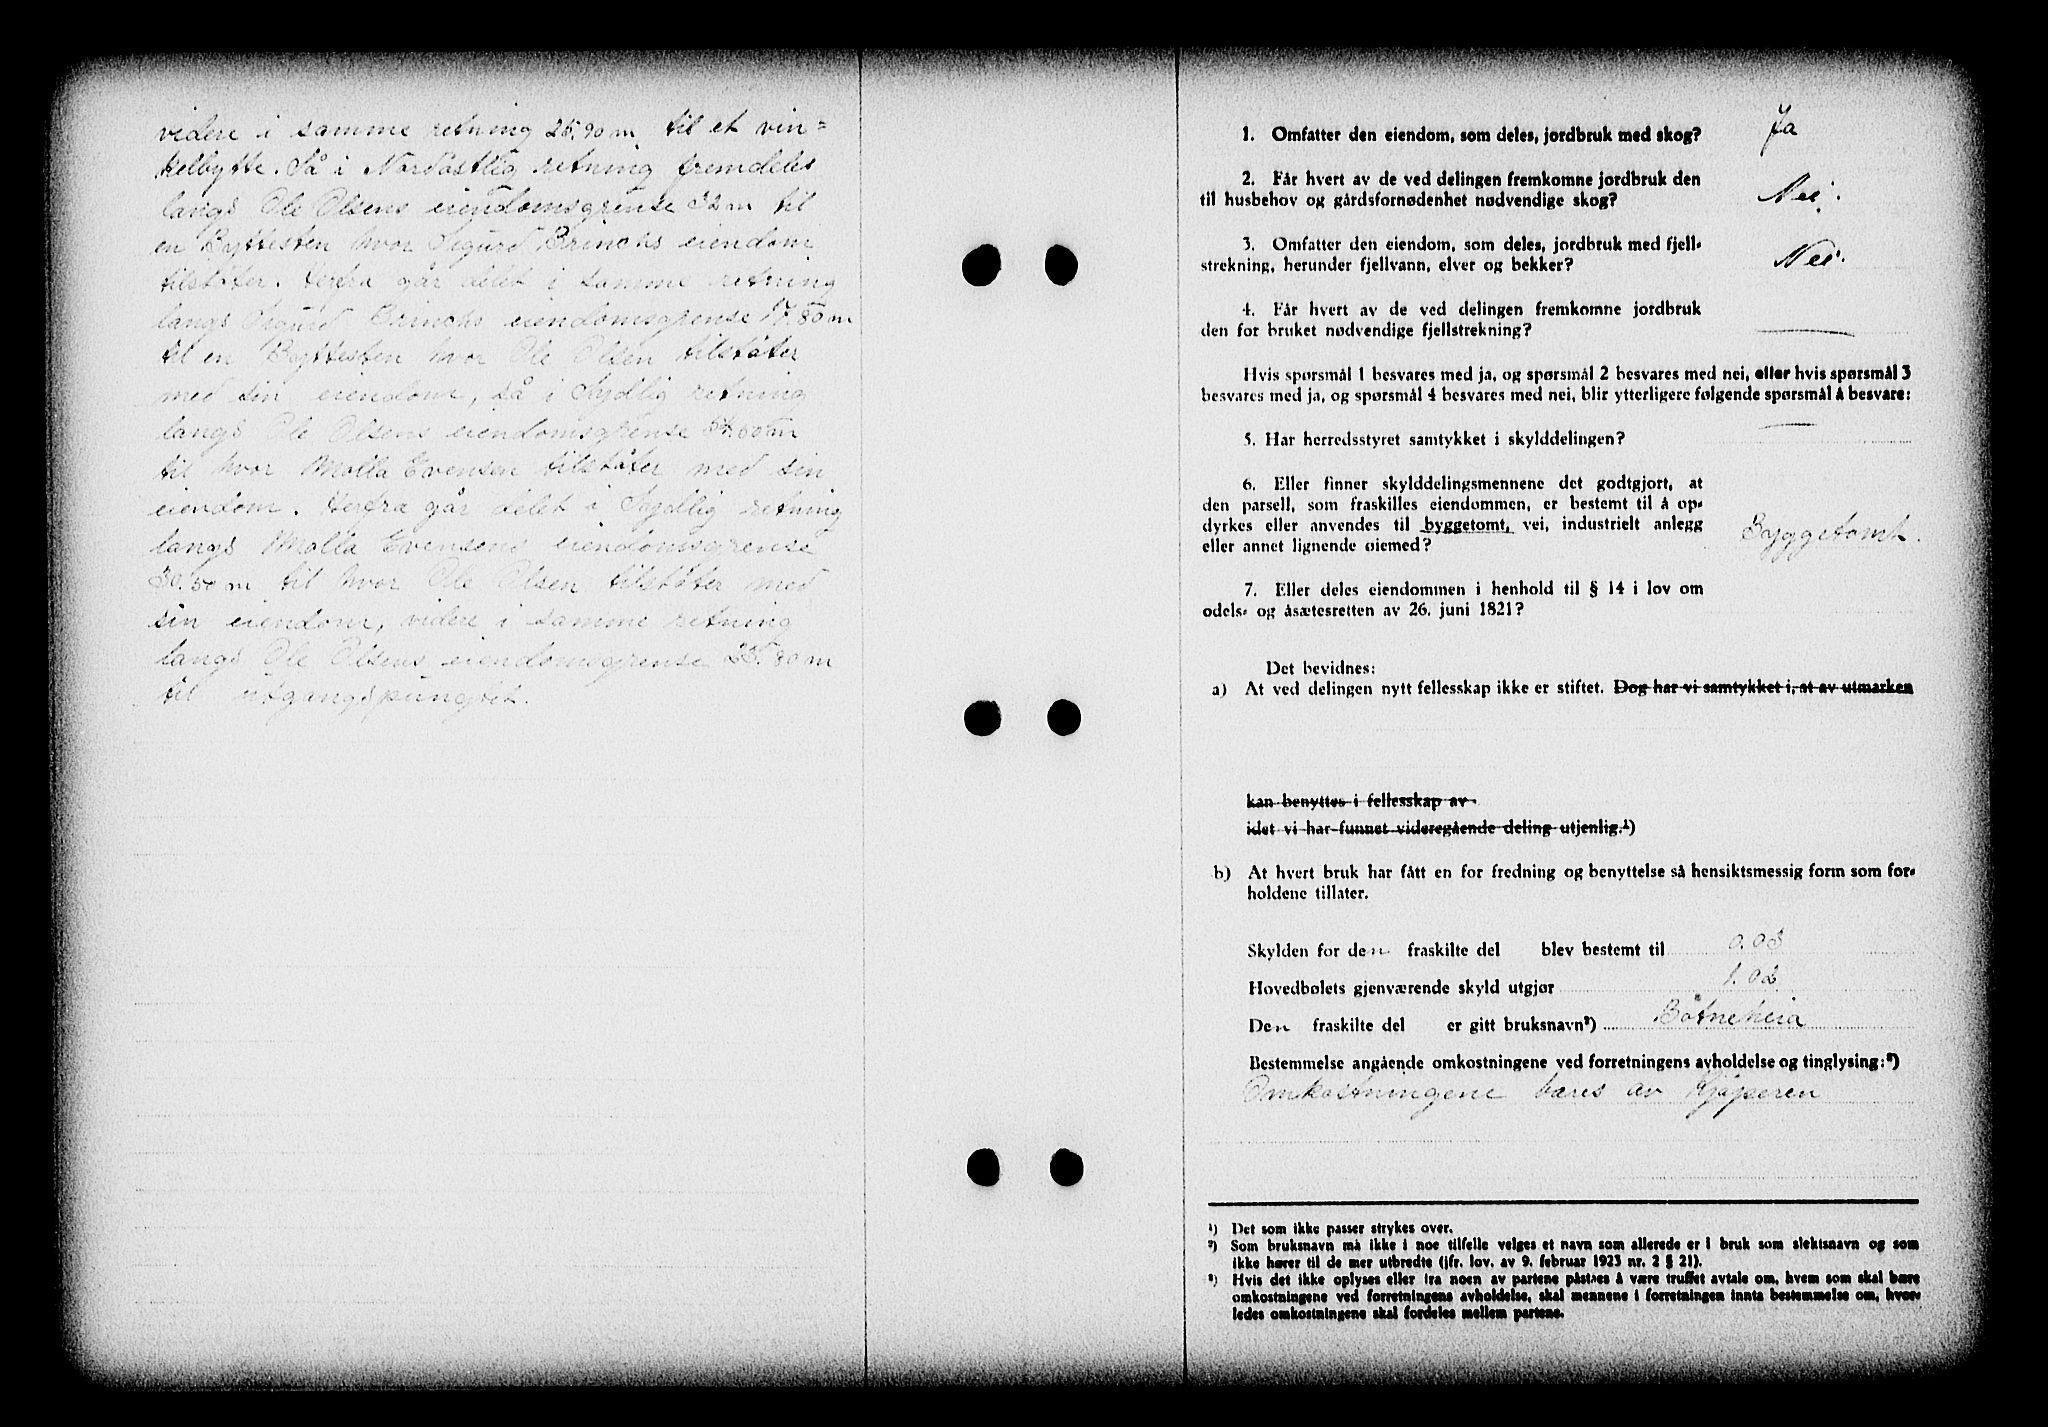 videre i samme retning 25.90 m til et vin=
kelbytte. Så i Nordøstlig retning fremdeles
langs Ole Olsens eiendomsgrense 32 m til
en Byttesten hvor Sigurd Brinchs eiendom
tilstøter. Herfra går delet i samme retning
langs Sigurd Brinchs eiendomsgrense 17.80 m
til en Byttesten hvor Ole Olsen tilstøter
med sin eiendom, så i Sydlig retning
langs Ole Olsens eiendomsgrense m
til hvor Molla Evensen tilstøter med sin
eiendom. Herfra går delet i Sydlig retning
langs Molla Evensens eiendomsgrense
30.50 m til hvor Ole Olsen tilstøter med
sin eiendom, videre i samme retning
langs Ole Olsens eiendomsgrense 25.80 m
til utgangspungtet.
1. Omfatter den eiendom, som deles, jordbruk med skog? Ja
2. Får hvert av de ved delingen fremkomne jordbruk den
til husbehov og gårdsfornødenhet nødvendige skog? Nei.
3. Omfatter den eiendom, som deles, jordbruk med fjell-
strekning, herunder fjellvann, elver og bekker? Nei.
4. Får hvert av de ved delingen fremkomne jordbruk
den for bruket nødvendige fjellstrekning?
Hvis spørsmål 1 besvares med ja, og spørsmål 2 besvares med nei, eller hvis spørsmål 3
besvares med ja, og spørsmål 4 besvares med nei, blir ytterligere følgende spørsmål å besvare:
5. Har herredsstyret samtykket i skylddelingen?
6. Eller finner skylddelingsmennene det godtgjort, at
den parsell, som fraskilles eiendommen, er bestemt til å op-
dyrkes eller anvendes til byggetomt, vei, industrielt anlegg
eller annet lignende øiemed? Byggetomt.
7. Eller deles eiendommen i henhold til § 14 i lov om
odels- og åsætesretten av 26. juni 1821?
Det bevidnes:
a) At ved delingen nytt fellesskap ikke er stiftet. Dog har vi samtykket i, at av utmarken
kan benyttes i fellesskap av
idet vi har funnet videregående deling utjenlig.¹)
b) At hvert bruk har fått en for fredning og benyttelse så hensiktsmessig form som for-
holdene tillater.
Skylden for den fraskilte del blev bestemt til 0.03
Hovedbølets gjenværende skyld utgjør 1.02
Den fraskilte del er gitt bruksnavn²) Båtneheia
Bestemmelse angående omkostningene ved forretningens avholdelse og tinglysing:³)
Omkostningene bæres av Kjøperen
¹) Det som ikke passer strykes over.
²) Som bruksnavn må ikke i noe tilfelle velges et navn som allerede er i bruk som slektsnavn og som
ikke hører til de mer utbredte (jfr. lov. av 9. februar 1923 nr. 2 § 21).
³) Hvis det ikke oplyses eller fra noen av partene påstaes å være truffet avtale om, hvem som skal bære
omkostningene ved forretningens avholdelse, skal mennene i forretningen innta bestemmelse om, hvor-
ledes omkostningene skal fordeles mellem partene.